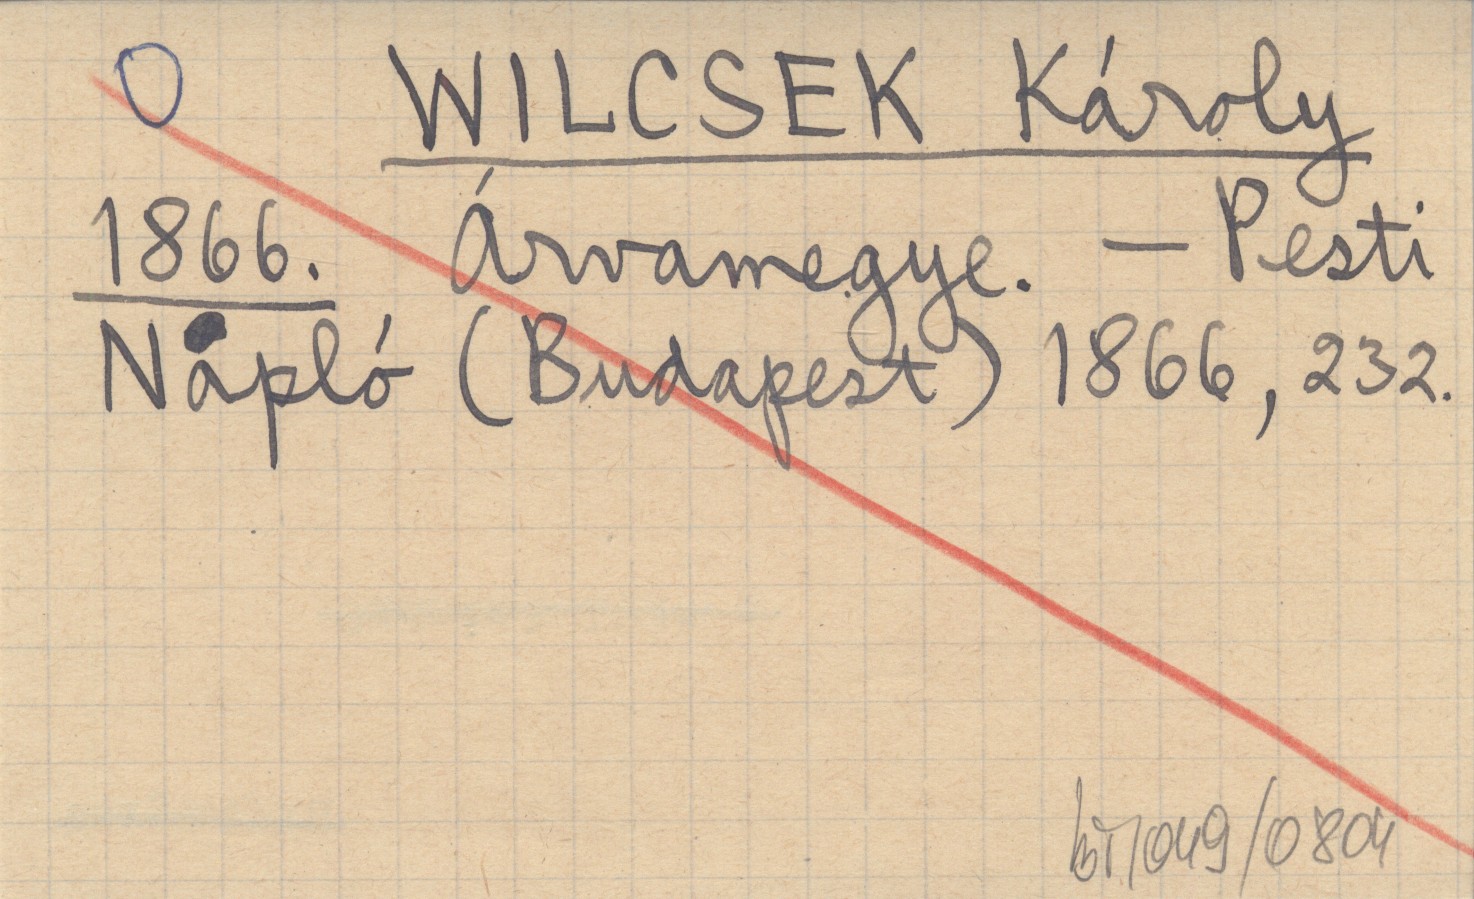 WILCSEK Károly
1866. Árvamegye. — Pesti
Napló (Budapest) 1866, 232.
/049/0804